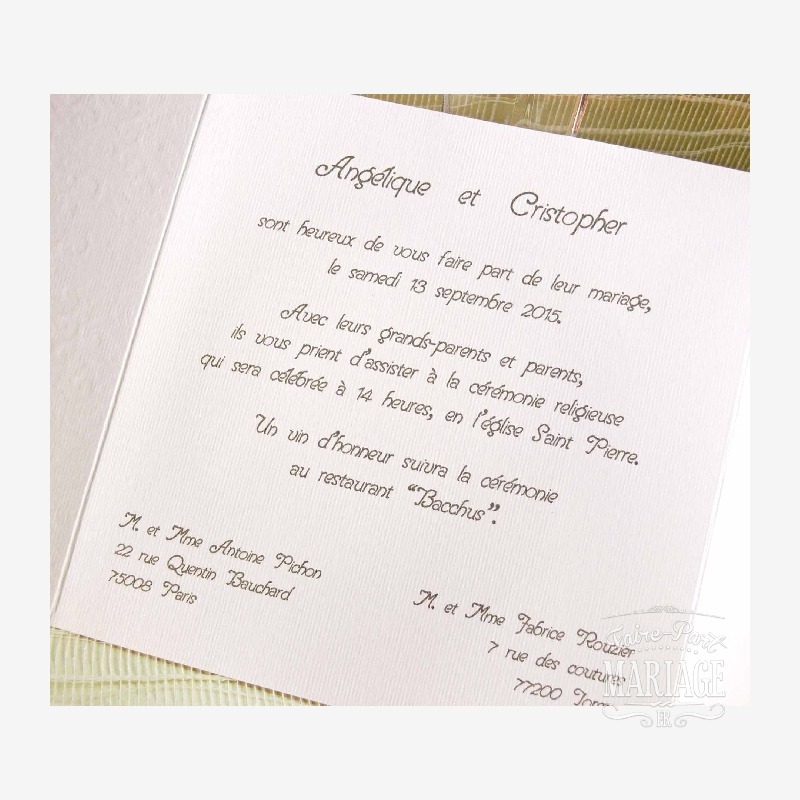 Angélique et Cristopher
sont heureux de vous faire part de leur mariage,
le samedi 13 septembre 2015.
Avec leurs grands-parents et parents,
ils vous prient d'assister à la cérémonie religieuse
qui sera célébrée à 14 heures, en l'église Saint Pierre.
Un vin d'honneur suivra la cérémonie
au restaurant “Bacchus”.
M. et Mme Antoine Pichon
22 rue Quentin Bauchard
75008 Paris
M. et Mme Fabrice Rouzier
7 rue des coutures
77200
Faire-Part
MARIAGE
.FR.